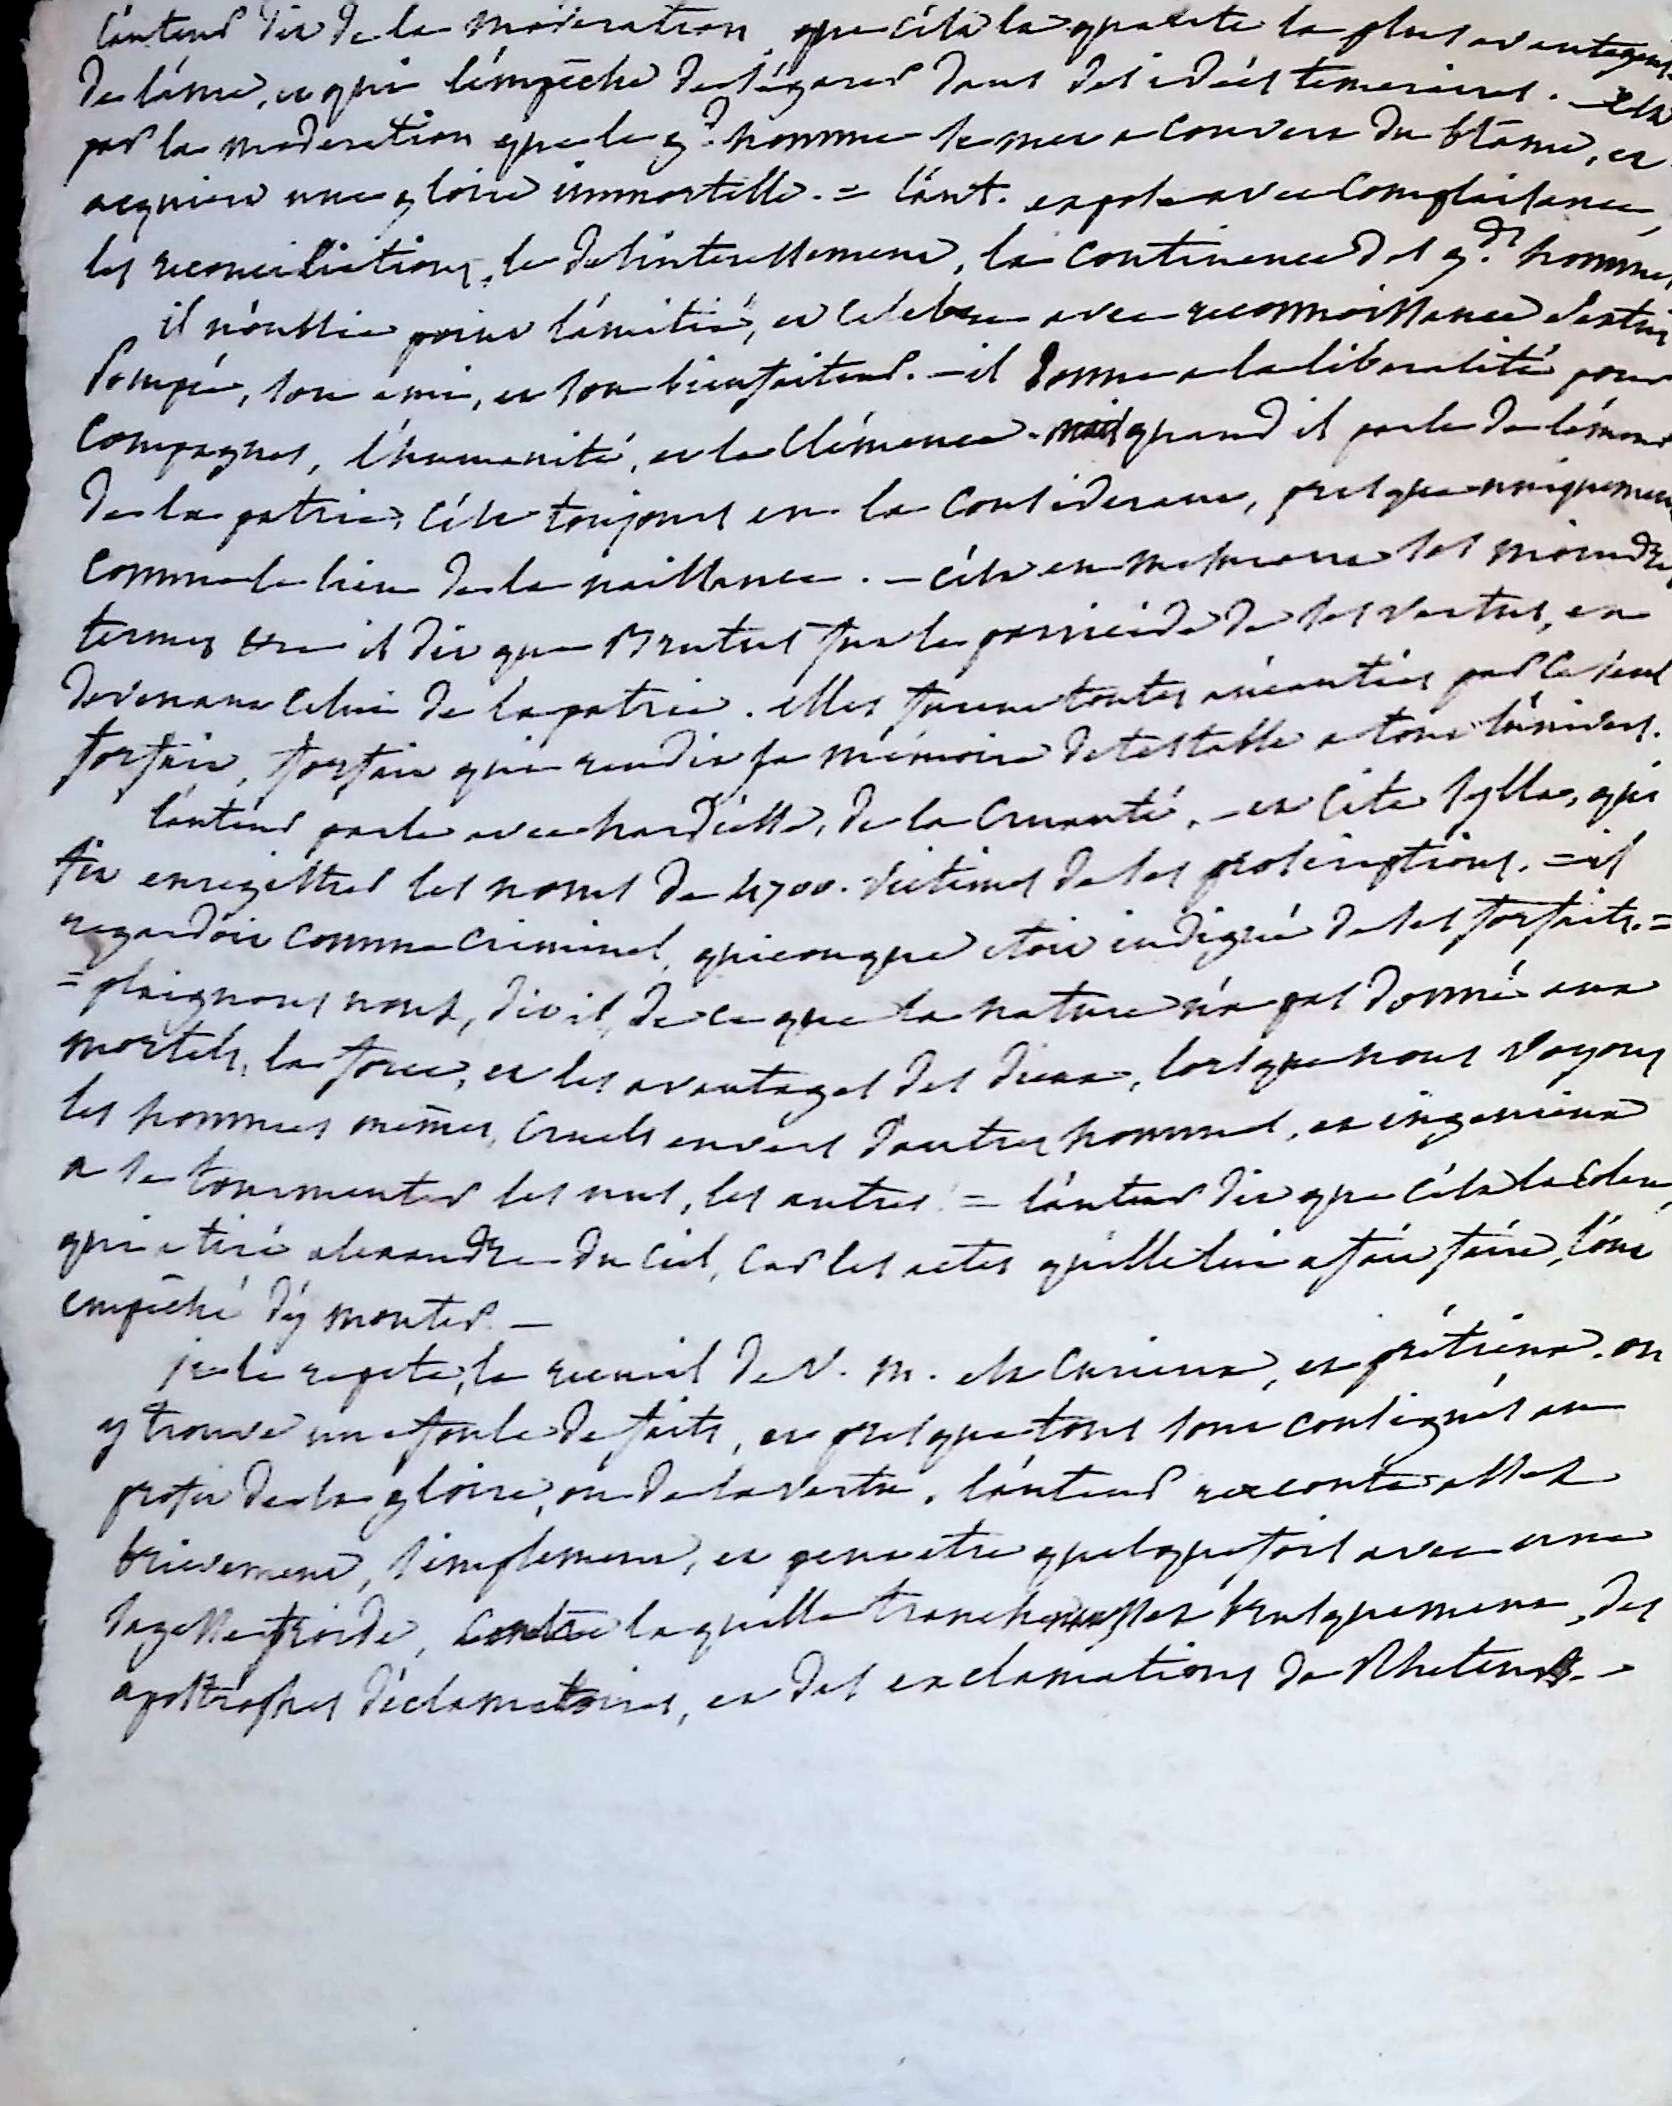 l'auteur dit de la moderation que c'est la qualité la plus avantageuse
de l'ame, et qui l'empêche de s'égarer dans des idées temeraires. - c'est
par la moderation que le gd. homme se met a couvert du blame, et
acquiert une gloire immortelle. = l'aut. expose avec complaisance,
les reconciliations, le desinteressement, la continence des gds. hommes,
il n'oublie point l'amitié, et celebre avec reconnoissance Sextus
Pompée, son ami, et son bienfaiteur. - il donne a la liberalité pour
compagnes, l'humanité, et la clémence. mais quand il parle de l'amour
de la patrie, c'est toujours en la considerant, presque uniquement
comme le lieu de la naissance. - c'est en mesurant ses moindres
termes il dit que Brutus fut le parricide de ses vertus, en
devenant celui de la patrie. elles furent toutes anéanties par ce seul
forfait, forfait qui rendit sa mémoire detestable a tout l'univers.
l'auteur parle avec hardiesse, de la cruauté, - et cite Sylla, qui
fit enregistrer les noms de 4700. victimes de ses proscriptions. = il
regardoit comme criminel, quiconque etoit indigné de ses forfaits. =
= plaignons nous, dit il, de ce que la nature n'a pas donné aux
mortels, la force, et les avantages des dieux, lorsque nous voyons
les hommes mêmes, cruels envers d'autres hommes, et ingenieux
a se tourmenter les uns, les autres ! = l'auteur dit que c'est la colere,
qui a tiré alexandre du ciel, car les actes qu'elle lui a fait faire, l'ont
empêché d'y monter. -
je le repete, le recueil de V. M. est curieux, et prétieux. on
y trouve une foule de faits, et presque tous sont consignés au
profit de la gloire, ou de la vertu. l'auteur raconte assez
brievement, simplement, et peut etre quelquefois avec une
sagesse froide, contre laquelle tranchent assez brusquement, des
apostrophes déclamatoires, et des exclamations de Rheteurs. -